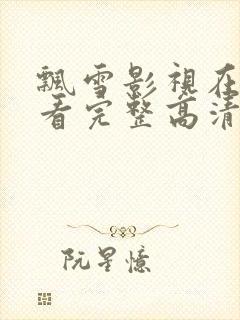 飄雪影視在
看完整高清
阮星憶